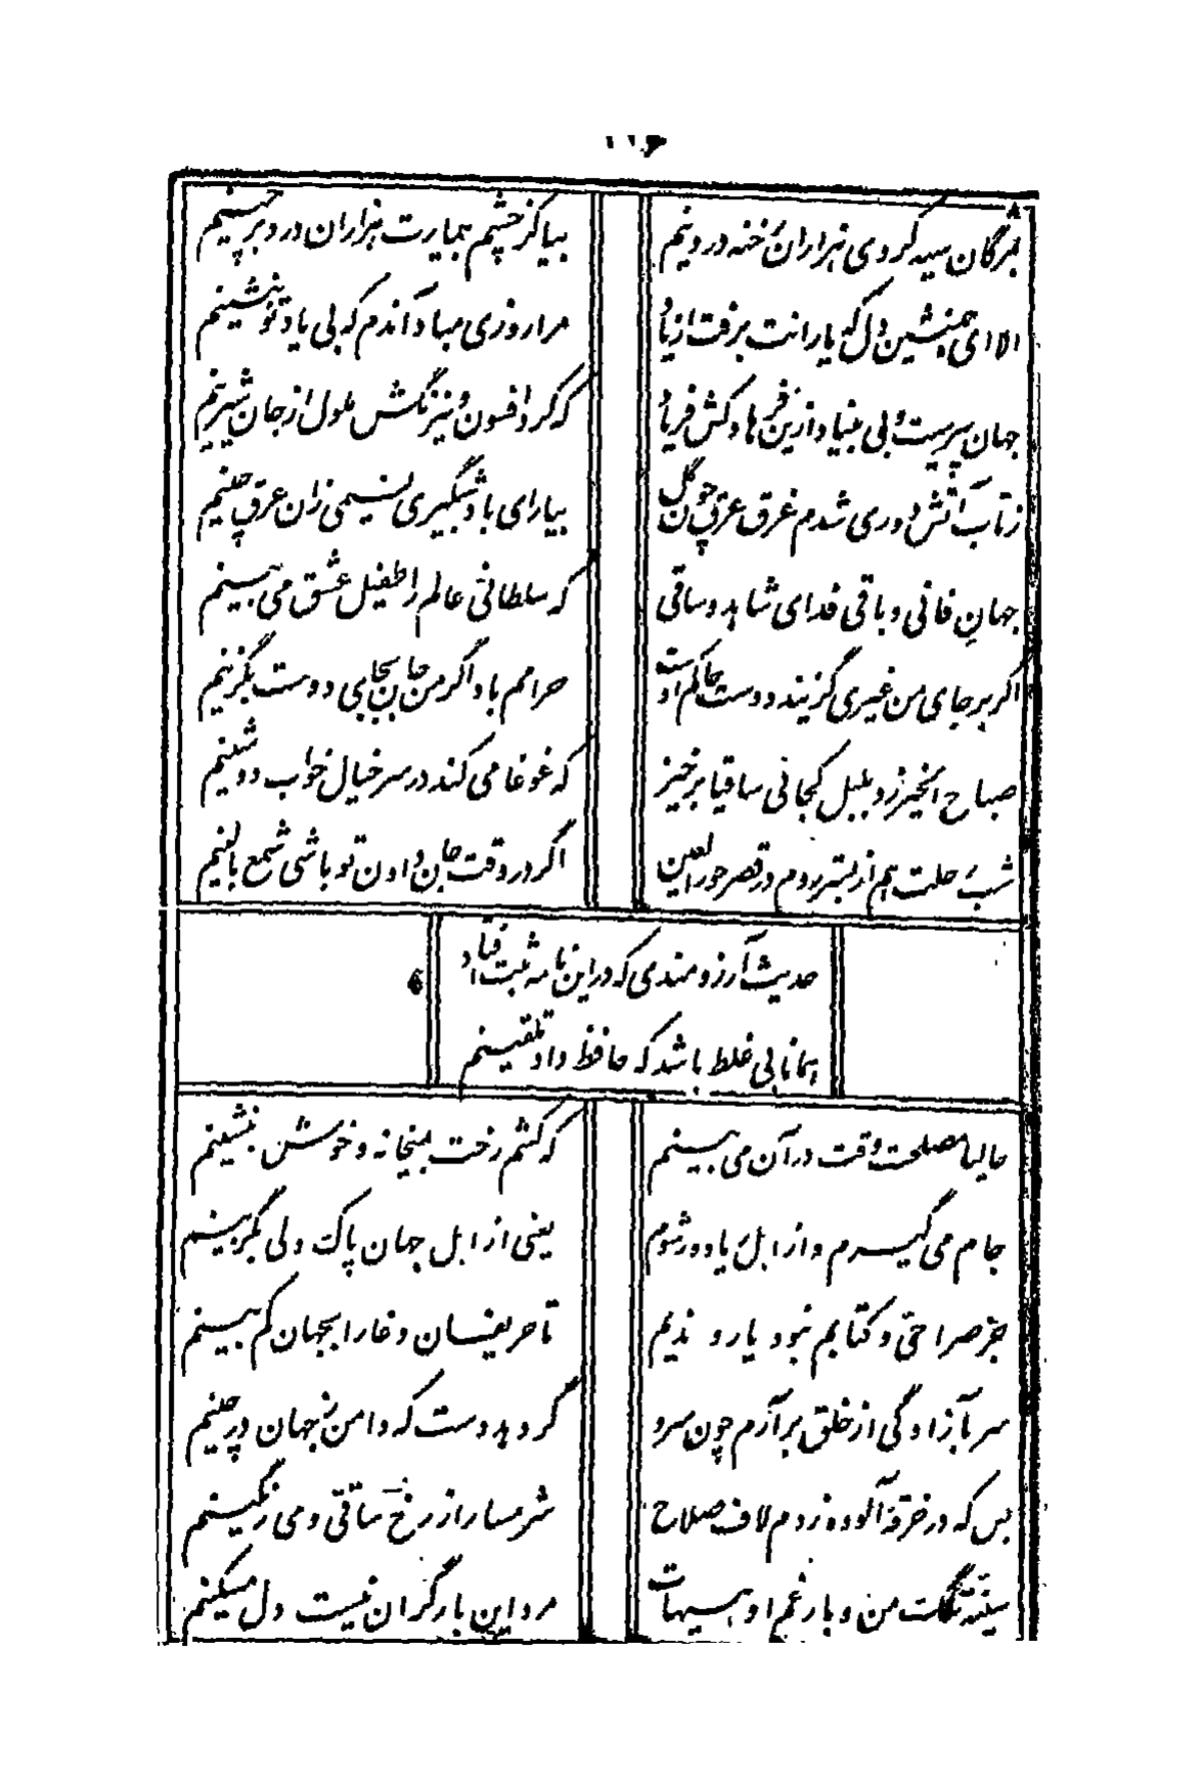 ۱۱۶
۸
بمژگان سیه کردی هزاران رخنه در دینم
بیا کز چشم بیمارت هزاران درد برچینم
الا ای همنشین دل که یارانت برفت از یاد
مرا روزی مباد آندم که بی یاد تو بنشینم
جهان پیرست و بی بنیاد ازین فرهادکش فریاد
که کرد افسون و نیرنگش ملول از جان شیرینم
زتاب آتش دوری شدم غرق عرق چون گل
بیار ای باد شبگیری نسیمی زان عرق چینم
جهان فانی و باقی فدای شاهد و ساقی
که سلطانی عالم را طفیل عشق می بینم
اگر بر جای من غیری گزیند دوست حاکم اوست
حرامم باد اگر من جان بجای دوست بگزینم
صباح الخیر زد بلبل کجائی ساقیا برخیز
که غوغا می کند در سر خیال خواب دوشینم
شب رحلت هم از بستر روم در قصر حورالعین
اگر در وقت جان دادن تو باشی شمع بالینم
حدیث آرزومندی که در این نامه ثبت افتاد
همانا بی غلط باشد که حافظ داد تلقینم
حالیا مصلحت وقت در آن می بینم
که کشم رخت بمیخانه و خوش بنشینم
جام می گیرم و از اهل ریا دور شوم
یعنی از اهل جهان پاک دلی بگزینم
جز صراحی و کتابم نبود یار و ندیم
تا حریفان دغا را بجهان کم بینم
سر بآزادگی از خلق برآرم چون سرو
گر دهد دست که دامن ز جهان درچینم
بس که در خرقه آلوده زدم لاف صلاح
شرمسار از رخ ساقی و می رنگینم
سینه تنگست من و بار غم او هیهات
مرد این بار گران نیست دل مسکینم